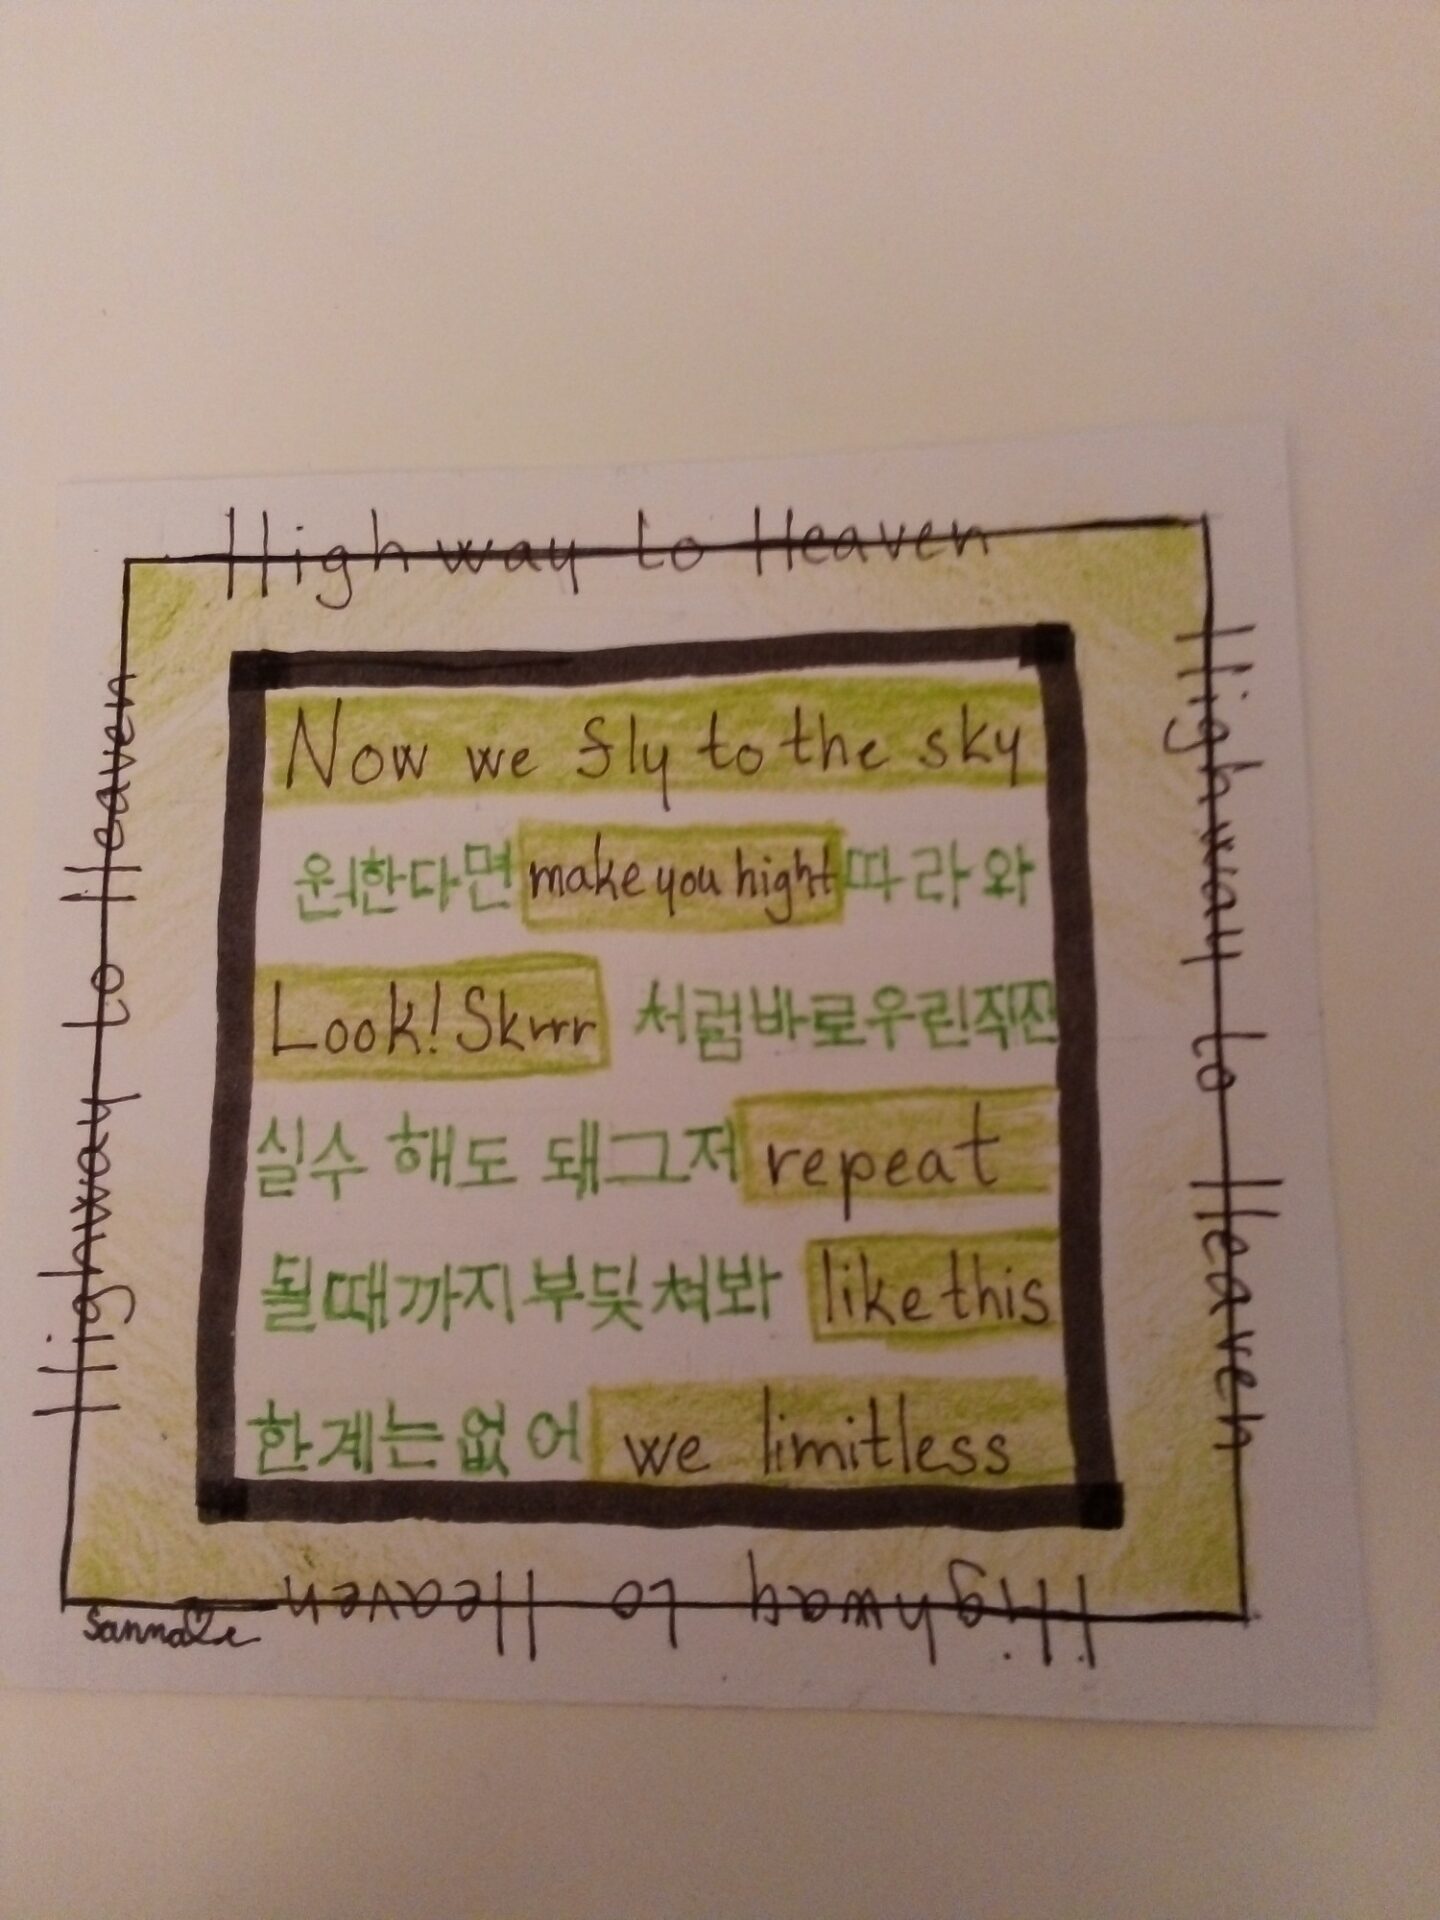 Highway to Heaven
Highway to Heaven
Highway to Heaven
Now we fly to the sky
원한다면 make you hight 따라와
Look! Skrrr 처럼바로우린직진
실수 해도 돼그저 repeat
될때까지부딪쳐봐 like this
한계는없어 we limitless
Highway to Heaven